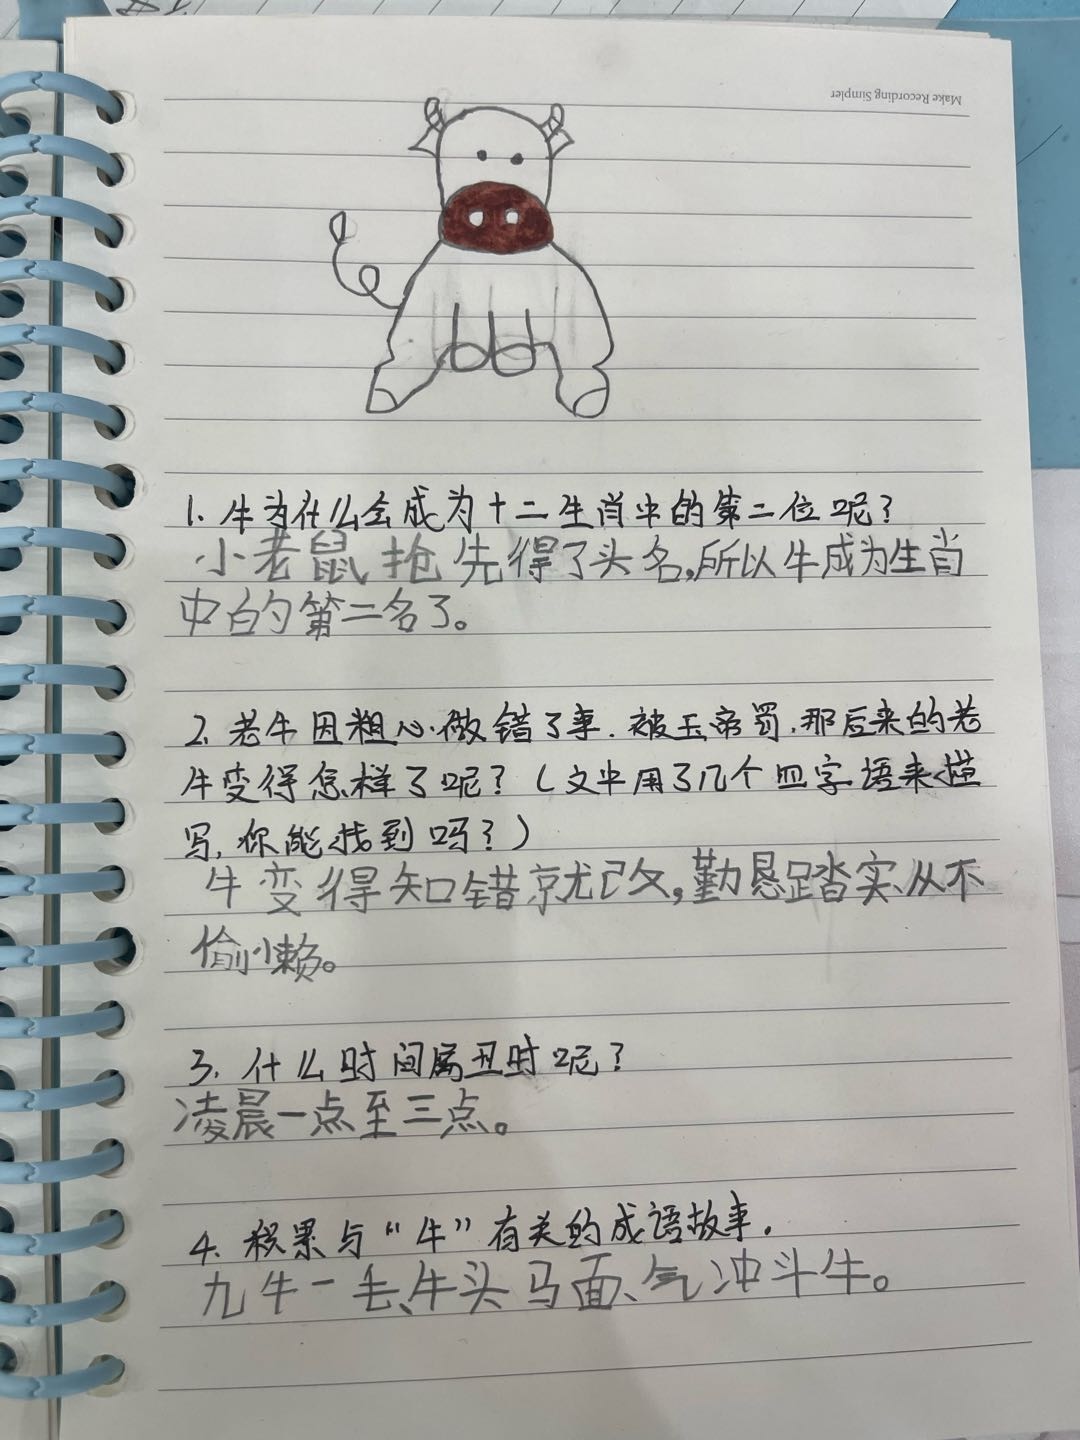 Make Recording Simpler
1. 牛为什么会成为十二生肖中的第二位呢？
小老鼠抢先得了头名,所以牛成为生肖
中的第二名了。
2. 老牛因粗心做错了事.被玉帝罚,那后来的老
牛变得怎样了呢？(文中用了几个四字语来描
写,你能找到吗？)
牛变得知错就改,勤恳踏实、从不
偷懒。
3. 什么时间属丑时呢？
凌晨一点至三点。
4. 积累与“牛”有关的成语故事.
九牛一毛、牛头马面、气冲斗牛。